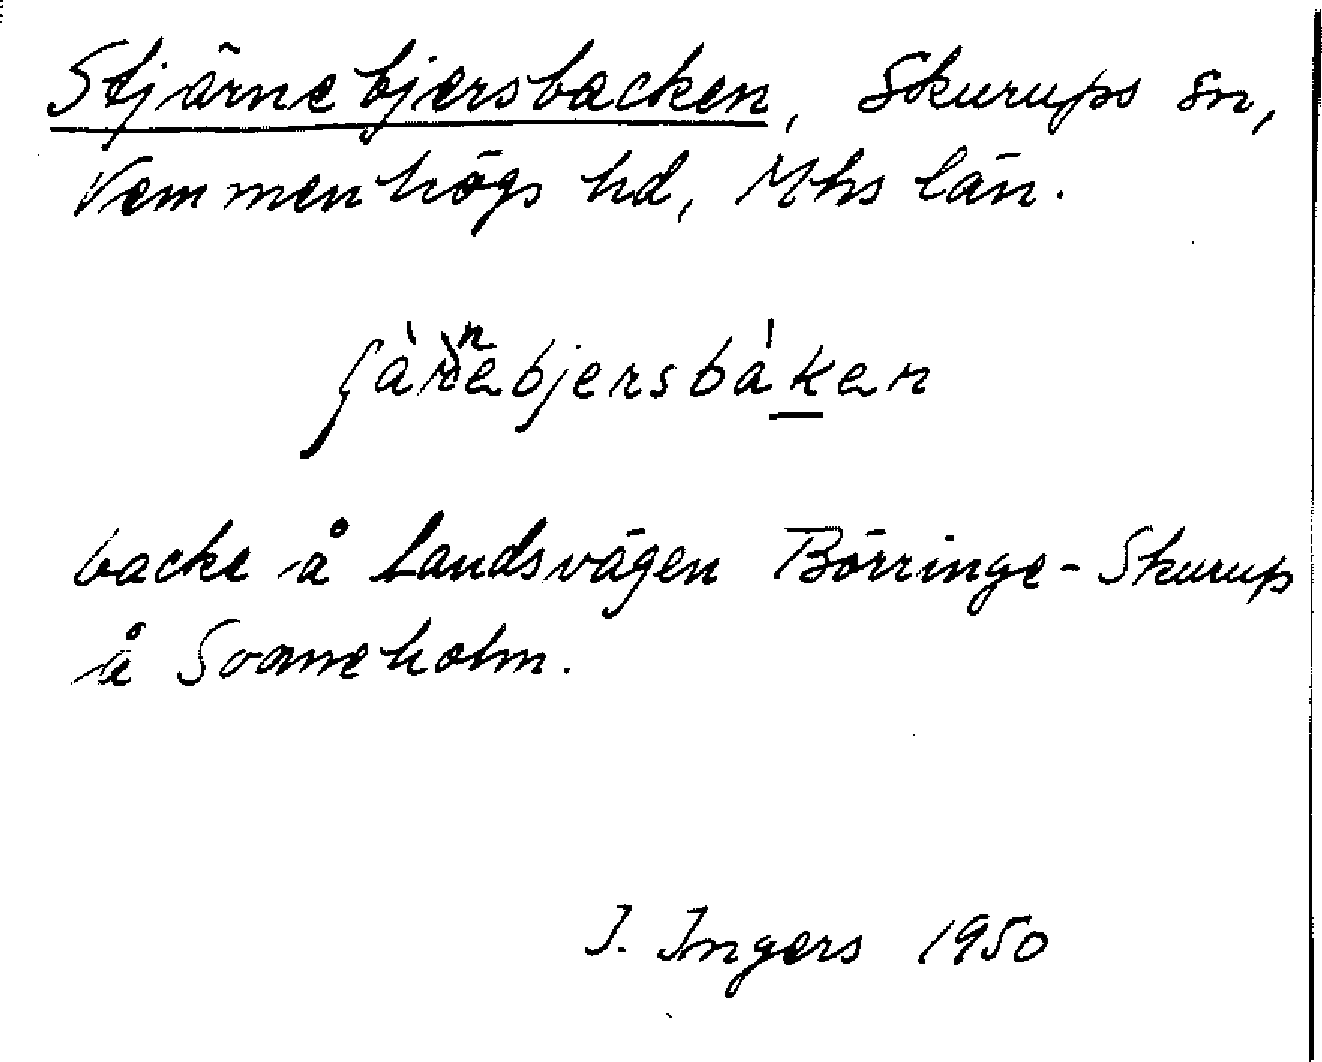 Stjärnebjersbacken, Skurups sn,
Vemmenhögs hd, Mhs län.
ʃä̀rnebjersbáken
backe å landsvägen Börringe-Skurup
å Svaneholm.
I. Ingers 1950